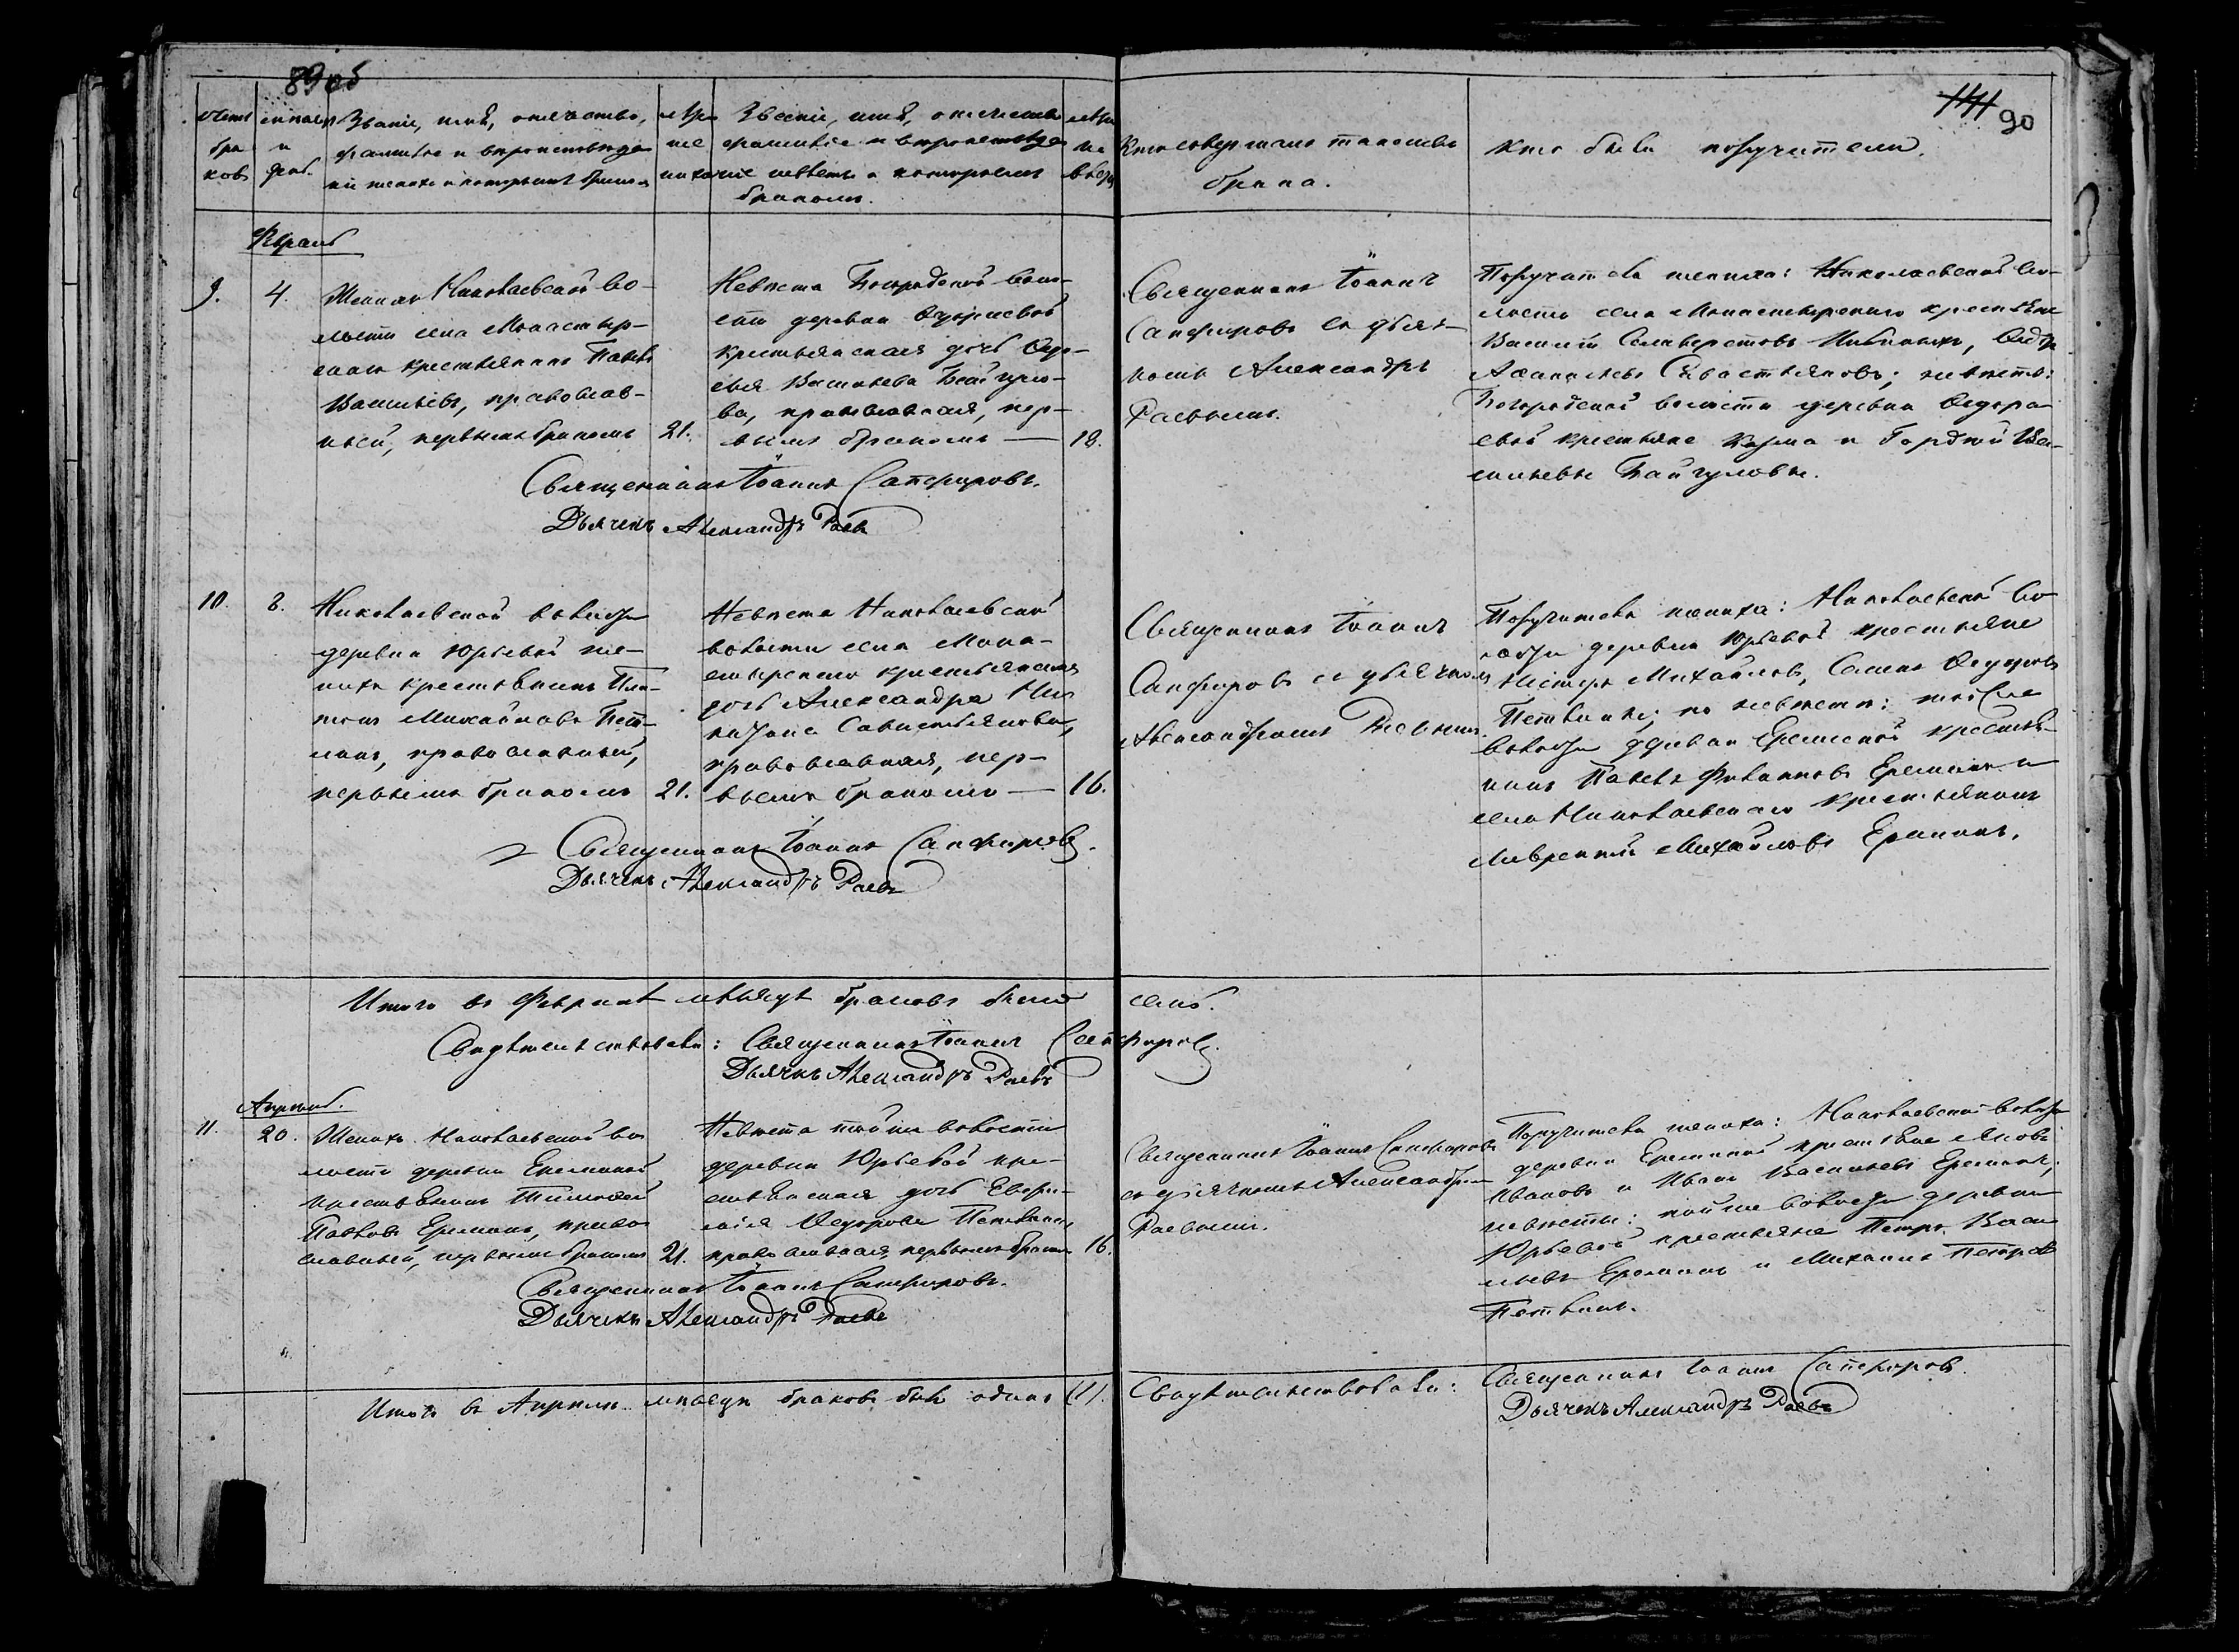 89об
Счетъ
бра
ковъ
и
Званіе, имя, отчество,
фамилія и вѣроисповѣда
ніе жениха и которымъ бракомъ
Званіе, имя, отчество
фамилія и вѣроисповѣда
ніе невѣсты и которымъ
бракомъ.
Кто совершалъ таинство
брака.
Кто были поручители.
90
Февраль
9.
4.
Женихъ Николаевской во-
лости села Монастыр-
скаго крестьянинъ Павелъ
Васильевъ, православ-
ный, первымъ бракомъ
21.
Невѣста Богородской воло-
сти деревни Ѳедораевой
крестьянская дочь
Васильева Байгуло-
ва, православная, пер-
вымъ бракомъ —
18.
Священникъ Іоаннъ
Сапфировъ съ дьяч-
комъ Александръ
Раевымъ.
Поручители жениха: Николаевской во-
лости села Монастырскаго крестьяне
Василій Селиверстовъ
Севастьяновъ; невѣсты:
Богородской волости деревни Ѳедора-
евой крестьяне Козма и Гордѣй Ва-
сильевы Байгуловы.
Священникъ Іоаннъ Сапфировъ.
Дьячекъ Александръ Раевъ
10.
8.
Николаевской волости
деревни Юрьевой же-
нихъ крестьянинъ Пла-
тонъ Михайловъ Пет-
линъ, православный,
первымъ бракомъ
21.
Невѣста Николаевской
волости села Мона-
стырскаго крестьянская
дочь Александра Ни-
Савастьянова,
православная, пер-
вымъ бракомъ —
16.
Священникъ Іоаннъ
Сапфировъ съ дьячкомъ
Александромъ Раевымъ.
Поручители жениха: Николаевской во-
лости деревни Юрьевой крестьяне
Нестеръ Михайловъ, Ѳедоровъ
Петлины; по невѣстѣ: той же
волости деревни Ереминой крестья-
нинъ Павелъ Филипповъ Ереминъ и
села Николаевскаго крестьянинъ
Лаврентій Михайловъ Ереминъ.
Священникъ Іоаннъ Сапфировъ.
Дьячекъ Александръ Раевъ
Итого въ Февралѣ мѣсяцѣ браковъ было семь.
Свидѣтельствовали: Священникъ Іоаннъ Сапфировъ.
Дьячекъ Александръ Раевъ
Апрѣль.
11.
20.
Женихъ Николаевской во-
лости деревни Ереминой
крестьянинъ Тимофей
Павловъ Ереминъ, право-
славный, первымъ бракомъ
21.
Невѣста той же волости
деревни Юрьевой кре-
стьянская дочь Евфи-
мія Ѳедорова Петлина
православная, первымъ бракомъ
16.
Священникъ Іоаннъ Сапфировъ
съ дьячкомъ Александромъ
Раевымъ.
Поручители жениха: Николаевской волости
деревни Ереминой крестьяне Яковъ
Ивановъ и Иванъ Васильевъ Еремины;
невѣсты: той же волости деревни
Юрьевой крестьяне Петръ Васи-
льевъ Ереминъ и Михаилъ Петровъ
Петлинъ.
Священникъ Іоаннъ Сапфировъ.
Дьячекъ Александръ Раевъ
Итого въ Апрѣлѣ мѣсяцѣ браковъ былъ одинъ (1). Свидѣтельствовали: Священникъ Іоаннъ Сапфировъ
Дьячекъ Александръ Раевъ